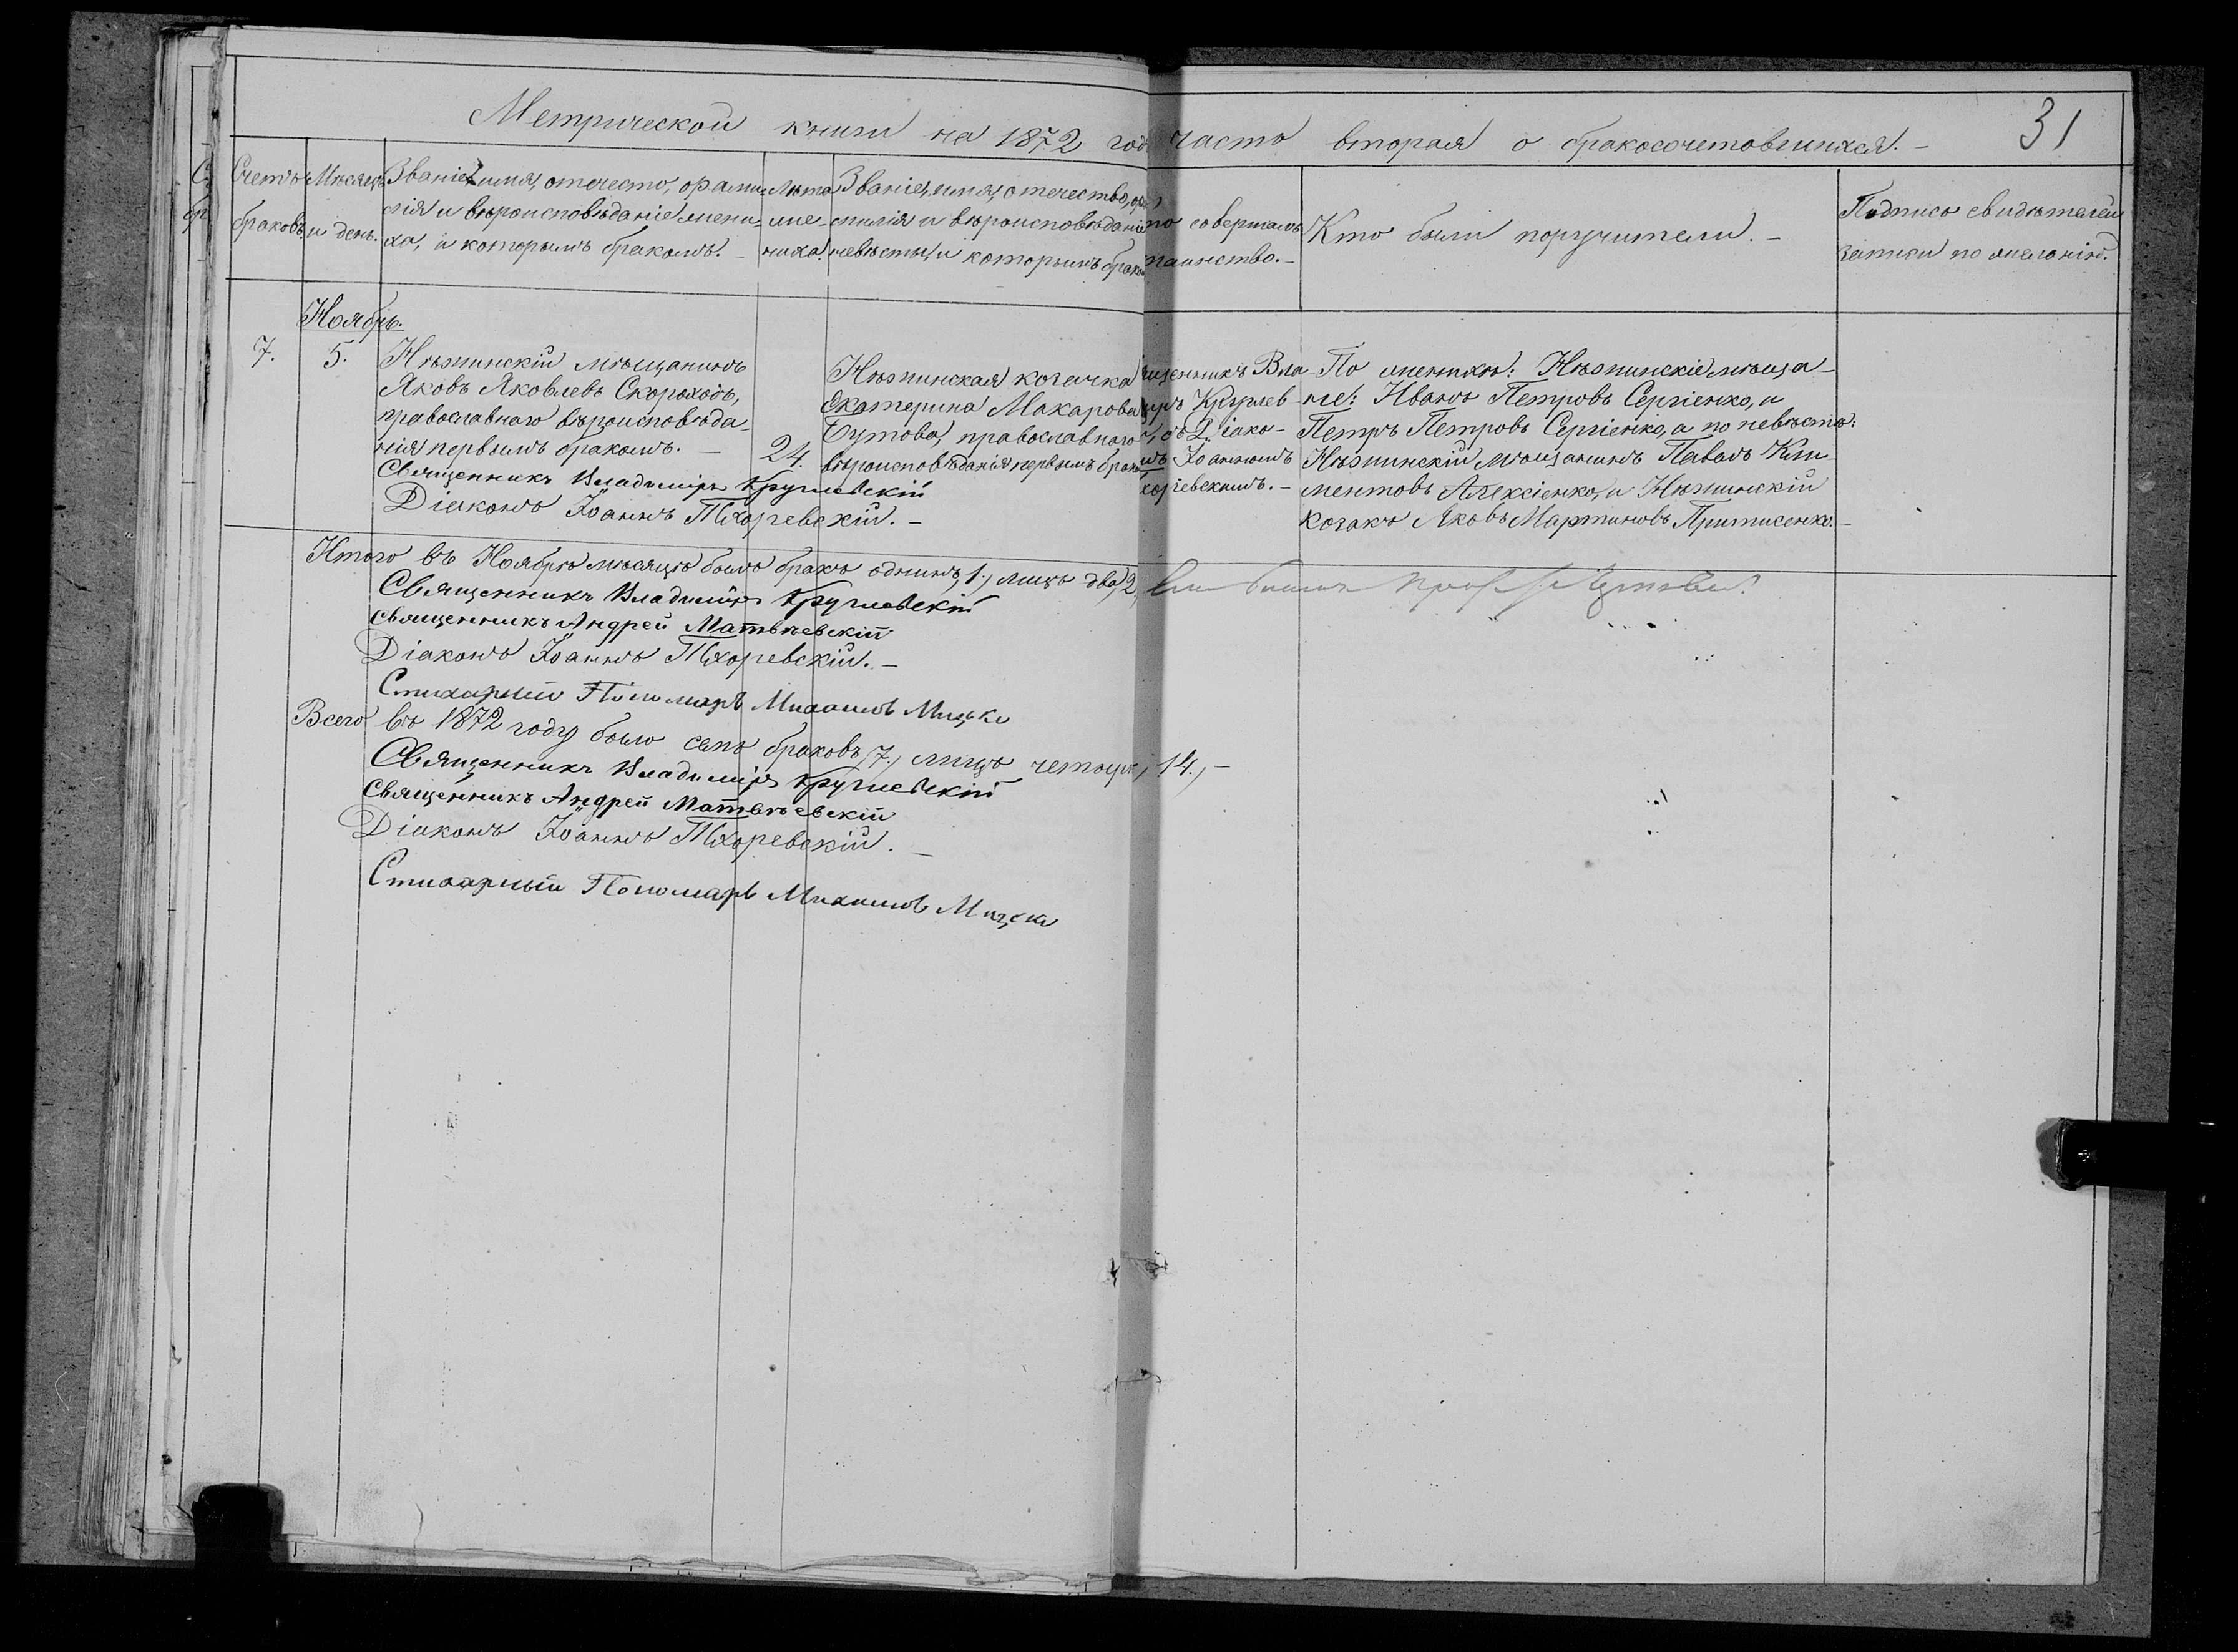 Метрической книги на 1872 год часть вторая о бракосочетовшихся. 31
Счетъ браковъ.
Мѣсяцъ и день.
Званіе, имя, отечество, фами-
лія и вѣроисповѣданіе жени-
ха, и которымъ бракомъ. –
Лѣта
же-
ниха.
Званіе, имя, отечество, фа
милія и вѣроисповѣданіе
невѣсты, и которымъ брако
то совершалъ
таинство. –
Кто были поручители. –
Подпись свидѣтелей
записи по желанію.
Ноябрь.
7. 5.
Нѣжинскій мѣщанинъ
Яковъ Яковлевъ Скороходъ,
православнаго вѣроисповѣда-
нія первымъ бракомъ. –
24.
Нѣжинская козачка
Екатерина Макарова
Бутова, православнаго
вѣроисповѣданія первымъ брако
щенникъ Вла-
иръ Круглев-
съ Діако-
мъ Іоанномъ
хоржевскимъ. –
По женихѣ: Нѣжинскіе мѣща-
не: Иванъ Петровъ Сергіенко, и
Петръ Петровъ Сергіенко, а по невѣстѣ:
Нѣжинскій мѣщанинъ Павелъ Кли-
ментовъ Алексіенко, и Нѣжинскій
козакъ Яковъ Мартиновъ Притисенко. –
Священникъ Владиміръ Круглевскій
Діаконъ Іоаннъ Тхоржевскій. –
Итого въ Ноябрѣ мѣсяцѣ былъ бракъ одинъ, 1., лицъ два, 2,
Священникъ Владиміръ Круглевскій
Священникъ Андрей Матвѣевскій
Діаконъ Іоаннъ Тхоржевскій. –
Стихарный Пономарь Михаилъ
Всего въ 1872 году было семь браковъ, 7., лицъ четыр, 14., –
Священникъ Владиміръ Круглевскій
Священникъ Андрей Матвѣевскій
Діаконъ Іоаннъ Тхоржевскій. –
Стихарный Пономарь Михаилъ